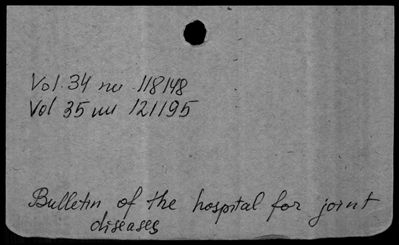 Vol. 34 no 118148
Vol 35 no 121195
Bulletin of the hospital for joint
diseases